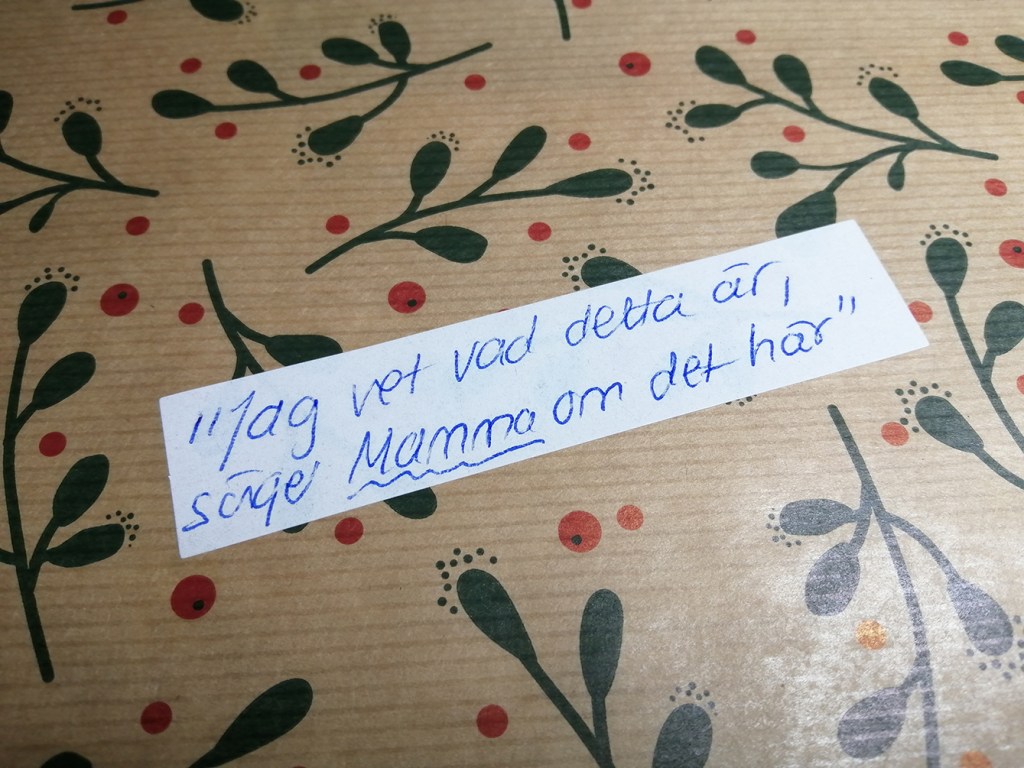 "Jag vet vad detta är,
säger Mamma om det här"